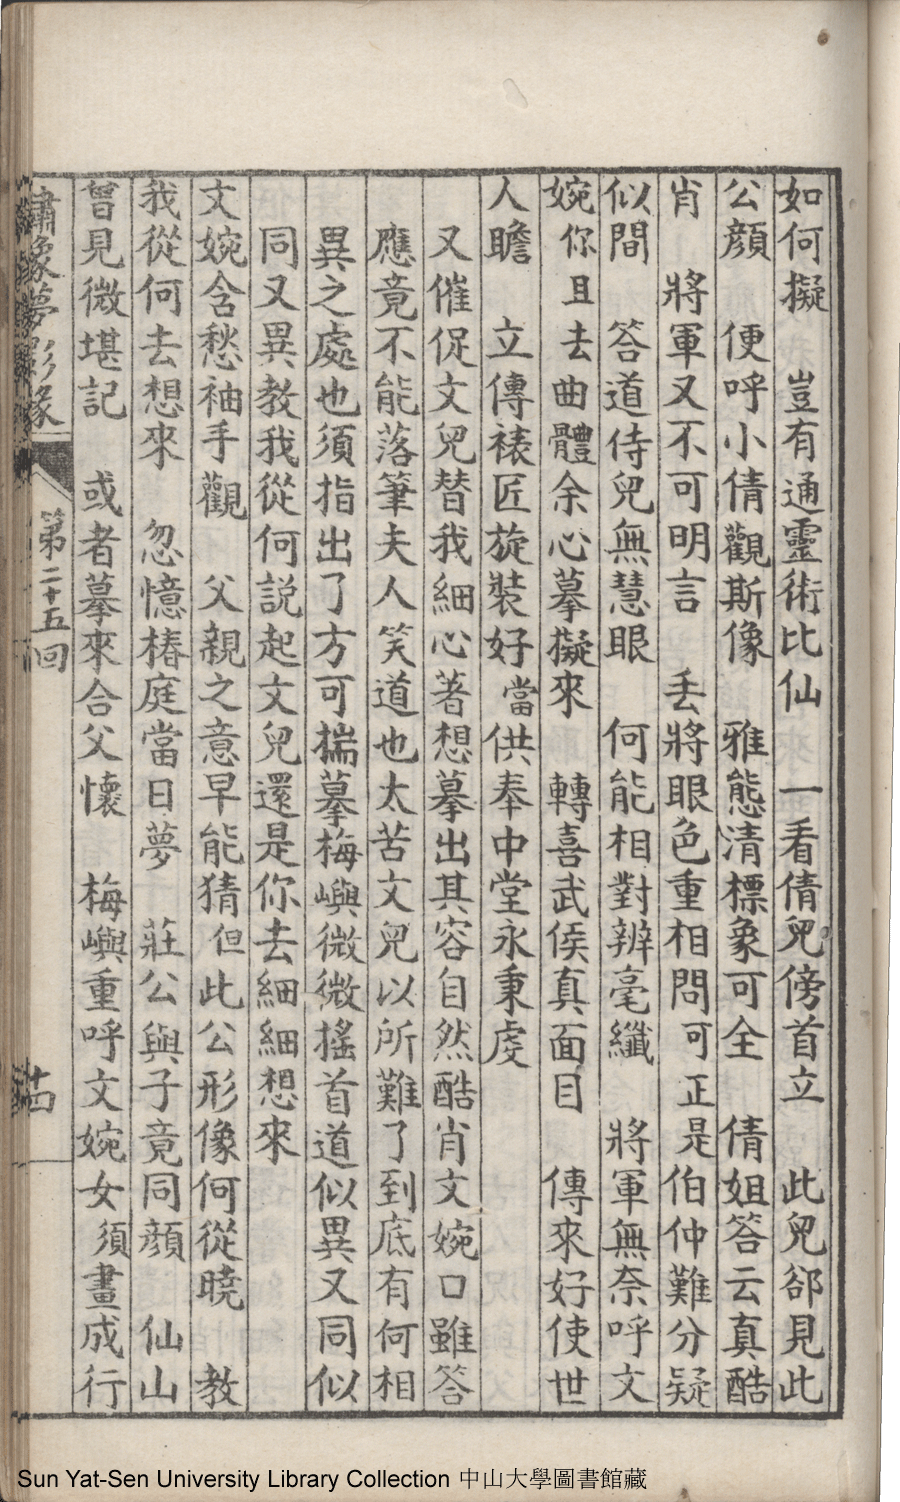 如何擬　豈有通靈術比仙　一看倩兒傍首立　此兒郤見此
公顔　便呼小倩觀斯像　雅態清標象可全　倩姐答云真酷
肖　將軍又不可明言　丢將眼色重相問可正是伯仲難分疑
似間　答道侍兒無慧眼　何能相對辨毫纖　將軍無奈呼文
婉你且去曲體余心摹擬來　轉喜武侯真面目　傳來好使世
人瞻　立傳裱匠旋裝好當供奉中堂永秉虔
又催促文兒替我細心著想摹出其容自然酷肖文婉口雖答
應竟不能落筆夫人笑道也太苦文兒以所難了到底有何相
異之處也須指出了方可揣摹梅嶼微微搖首道似異又同似
同又異教我從何説起文兒還是你去細細想來
文婉含愁袖手觀　父親之意早能猜但此公形像何從曉　教
我從何去想來　忽憶椿庭當日夢　莊公與子竟同顔　仙山
曾見微堪記　或者摹來合父懷　梅嶼重呼文婉女須畫成行
繡像夢影緣　第二十五回　廿四
Sun Yat-Sen University Library Collection 中山大學圖書館藏